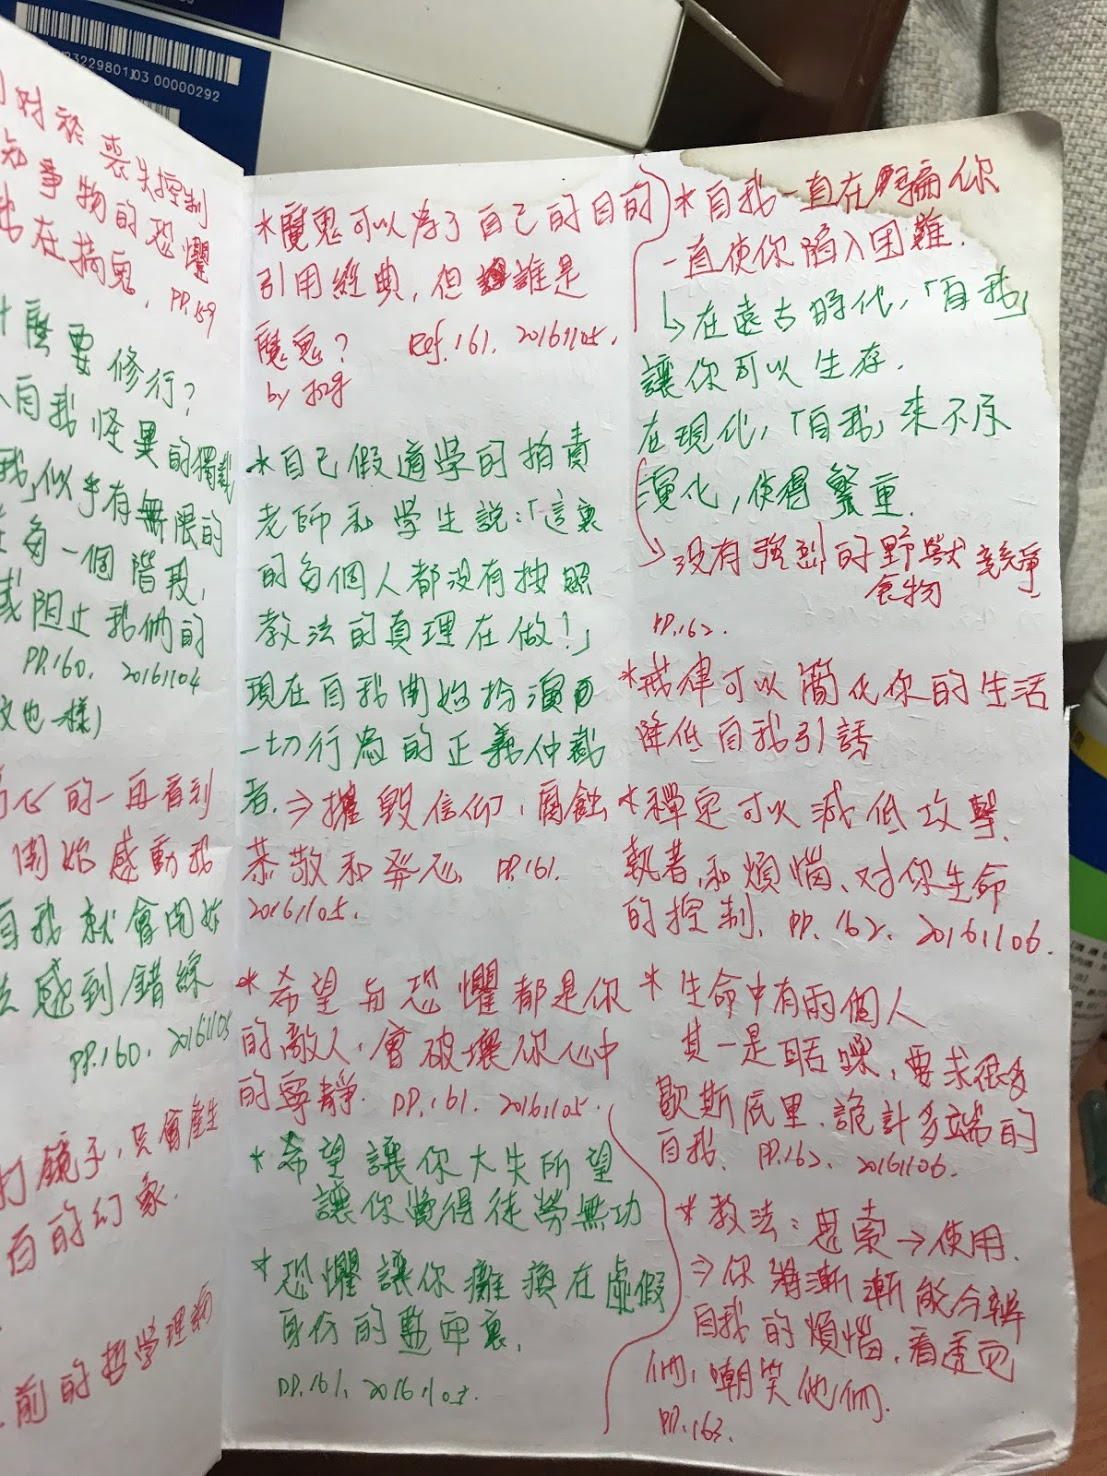 3229801J03 00000292
对於喪失控制
事物的恐懼
在搞鬼. PP.159
麼要修行?
自我怪異的獨裁
我」似乎有無限的
每一個階段,
阻止我們的
PP.160. 20161104
也一樣)
心的一再看到
開始感動我
自我就會開始
感到錯綜
PP.160. 20161105
打鏡子,只會產生
百的幻象.
前的哲學理
*魔鬼可以為了自己的目的
引用經典,但誰是
魔鬼? Ref.161. 20161105.
by
*自己假道学的指責
老師和学生説:「這裏
的每個人都没有按照
教法的真理在做!」
現在自我開始扮演
一切行為的正義仲裁
者.⇒摧毀信仰、腐蝕
恭敬和發心. PP.161.
20161105.
*希望与恐懼都是你
的敵人,會破壞你心中
的寧靜. PP.161. 20161105.
*希望讓你大失所望
讓你覺得徒勞無功
*恐懼讓你癱瘓在虛假
身份的藍面裏.
PP.161. 20161105.
*自我一直在騙你
一直使你陷入困難.
↳在遠古時代,「自我」
讓你可以生存.
在現代,「自我」来不及
演化,使得繁重.
→没有強烈的野獸競爭
食物
PP.162.
*戒律可以簡化你的生活
降低自我引誘
*禪定可以減低攻擊、
執著、和煩惱、对你生命
的控制. PP.162. 20161106.
*生命中有兩個人
其一是聒噪,要求很多
歇斯底里、詭計多端的
自我. PP.162. 20161106.
*教法:思索→使用.
⇒你將漸漸能分辨
自我的煩惱,看透
他們,嘲笑他們.
PP.163.